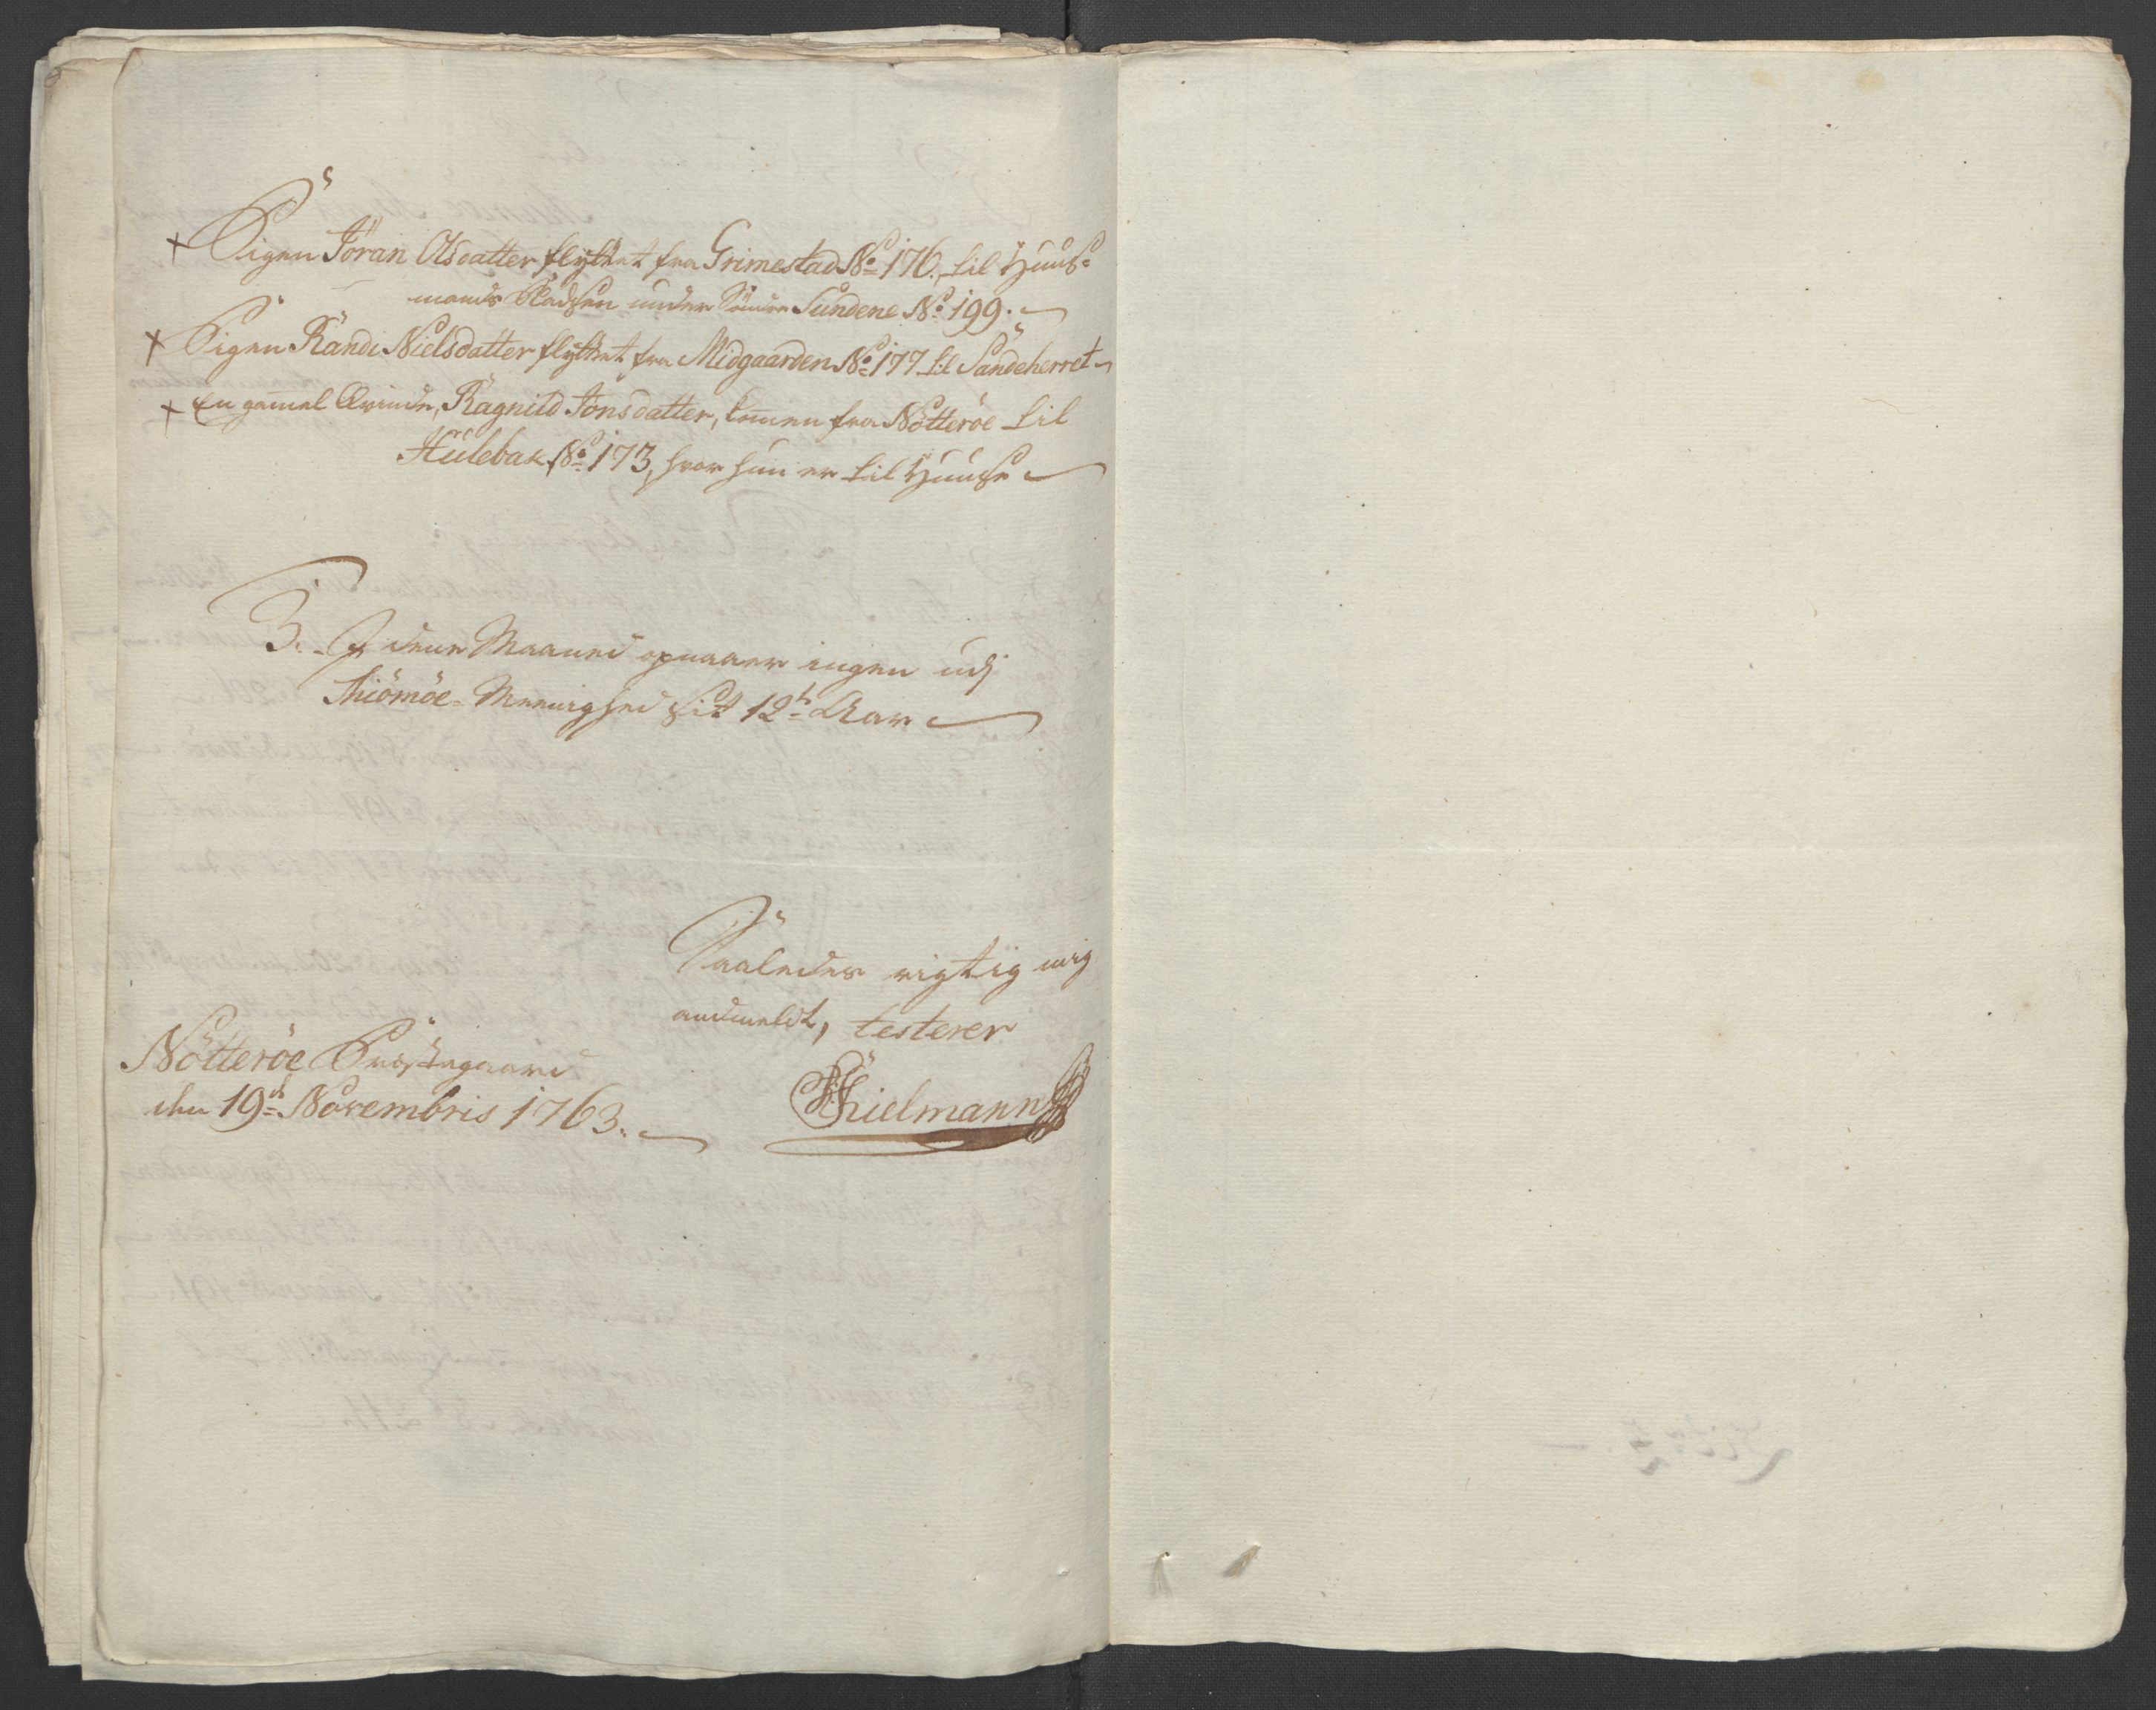 + Pigen Jöran Olsdatter flyttet fra Grimestad No 176. til Huus-
mands Pladsen under Söndre Sundene No 199.
+ Pigen Randi Nielsdatter flyttet fra Midgaarden No 177 til Sandeherret
+ En gamel Qvinde, Ragnild Jonsdatter, komen fra Nötteröe til
Hulebak No 173, hvor hun er til Huuse
3. I denne Maaned opnaaer ingen udj
Thiömöe Menighed sit 12te Aar
Saaledes rigtig mig
andmeldt, testerer
Nötteröe Præstegaard
den 19de Novembris 1763.
Kielmann